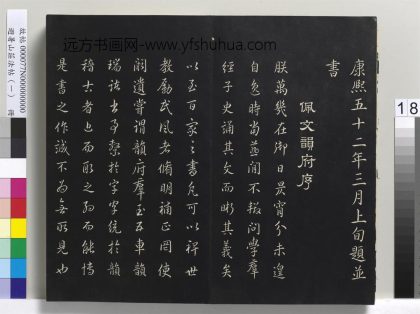 远方书画网-www.yfshuhua.com
康熙五十二年三月上旬題並
書
佩文韻府序
朕萬幾在御日昃宵分未遑
自逸時當燕閒不輟問學羣
經子史誦其文而晰其義矣
以至百家之書凡可以裨世
教勵民風者備明補正罔使
闕遺嘗謂韻府羣玉五車韻
瑞諸書事繫於字字統於韻
稽古者近而取之約而能博
是書之作誠不為無所見也
故帖 000077N000000000
避暑山莊法帖（一） 冊
18